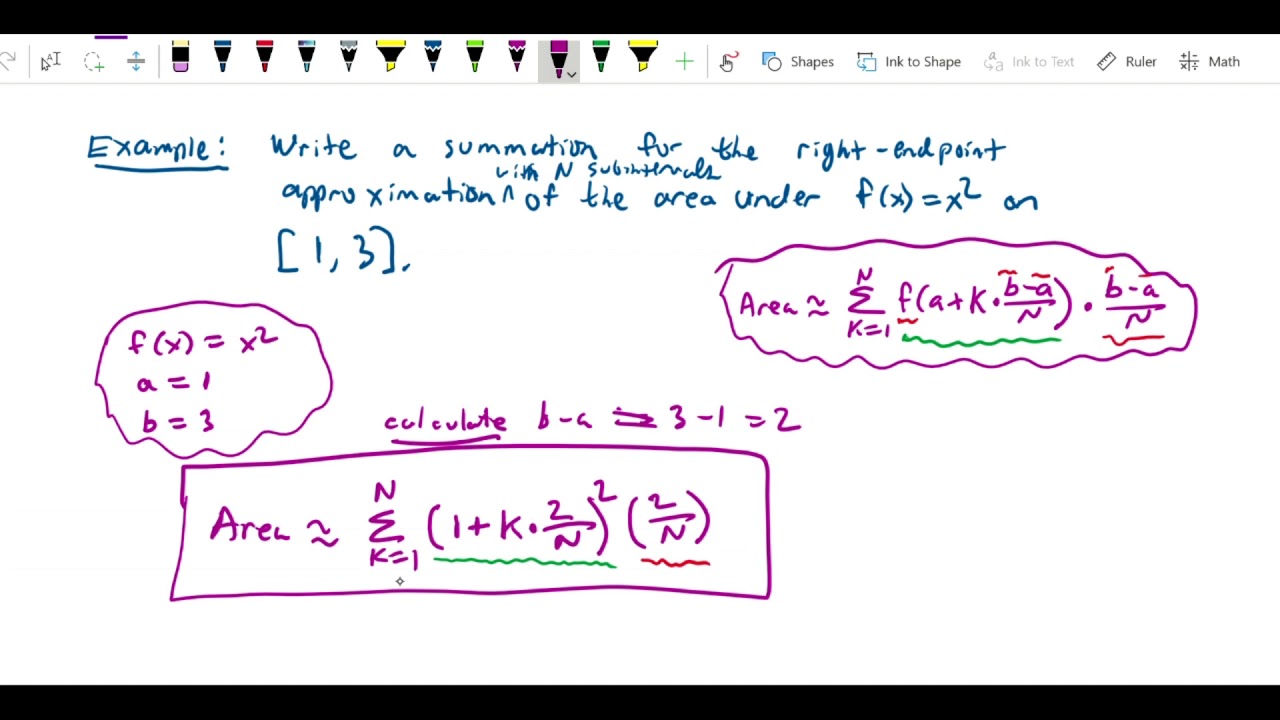 Shapes Ink to Shape Ink to Text Ruler Math
Example: Write a summation for the right-endpoint
with N subintervals
approximation ^ of the area under f(x) = x² on
[1, 3].
Area ≈ N Σ K=1 f(a+K·b-a/N)·b-a/N
f(x) = x²
a = 1
b = 3
calculate b-a = 3-1 = 2
Area ≈ N Σ K=1 (1+K·2/N)² (2/N)